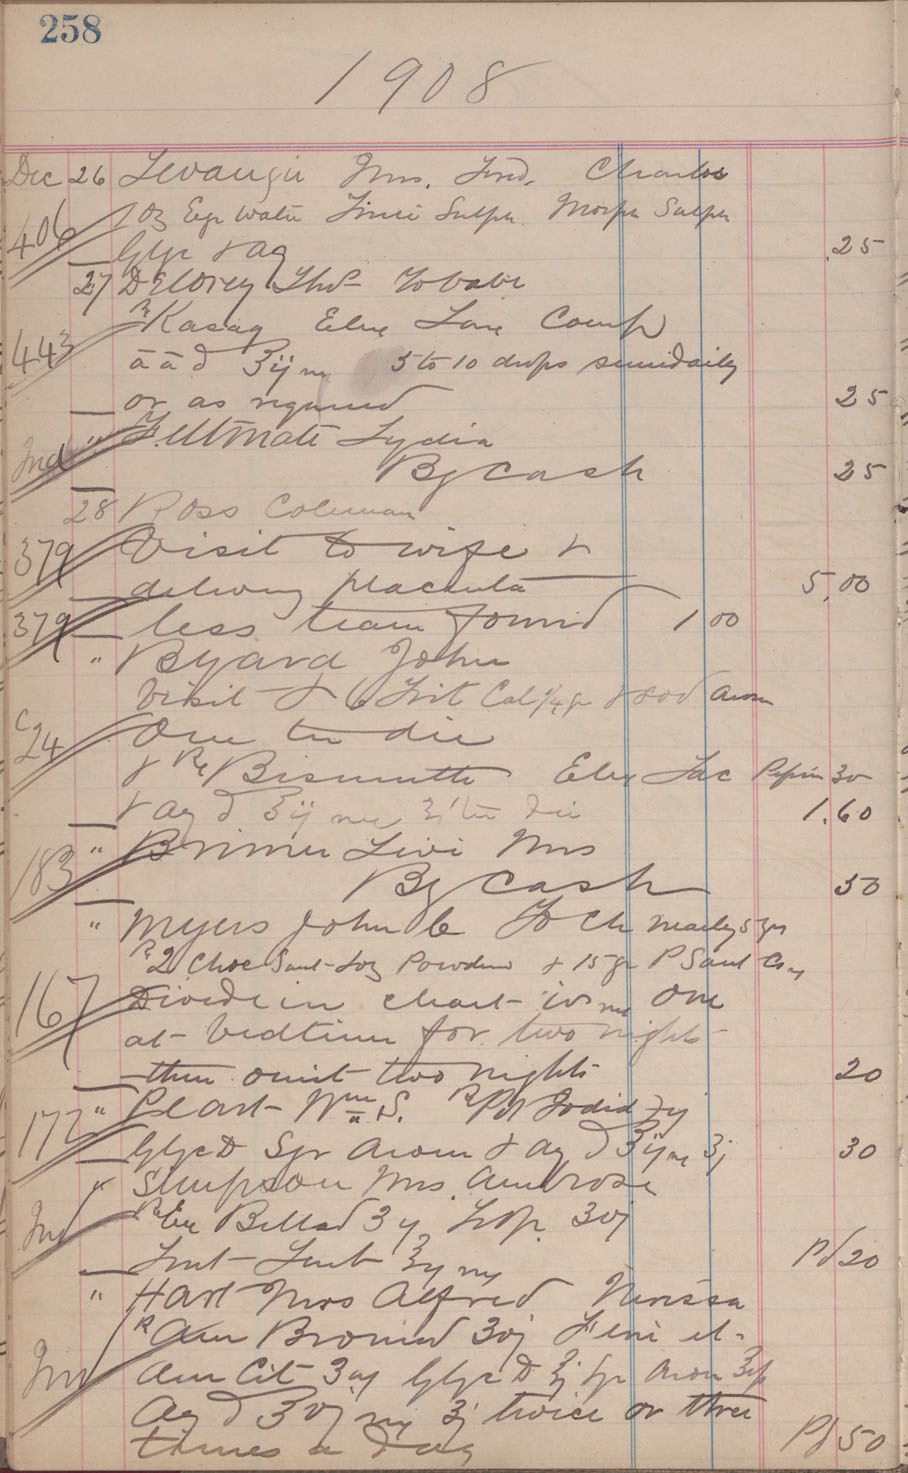 258
1908
Dec 26 Levangie Mrs. Fred. Charlos
406 1 oz Eye Water Zinci Sulph Morph Sulph
Glyc & aq .25
27 Delorey Thos Tobabe
443 ℞ Kasag Elix Lax Comp
āā d ʒij 5 to 10 drops semidaily
or as required 25
Ind " Feltmate Lydia
By Cash 25
28 Ross Coleman
379 Visit to wife &
delivery placenta 5.00
379 less team found 1 00
" Byard John
Visit & 6 Trit Cal 1/4 gr & Sod Arom
C24 One ter die
& ℞ Bismuth Elix Lac Pepsin 30
& aq d ʒij ʒi ter die 1.60
183 " Brimer Levi Mrs
By Cash 50
" Myers John C To Ch nearly 5 yrs
℞ 2 Choc Sant Loz Powdered & 15 gr P Sant Co
167 Divide in chart iv One
at bedtime for two nights
then omit two nights 20
172 " Peart Wm S. ℞ Pot Iodid
Glyc Syr Arom & aq d ʒij ʒj 30
" Simpson Mrs. Ambrose
Ind ℞ Bellad ʒij
Pd 20
" Hart Mrs Alfred Nerissa
℞ Am Bromid ʒvj Ferri et
Ind Am Cit Glyc Syr Arom
Aq d ʒvj ʒj twice or three
times a day Pd 50